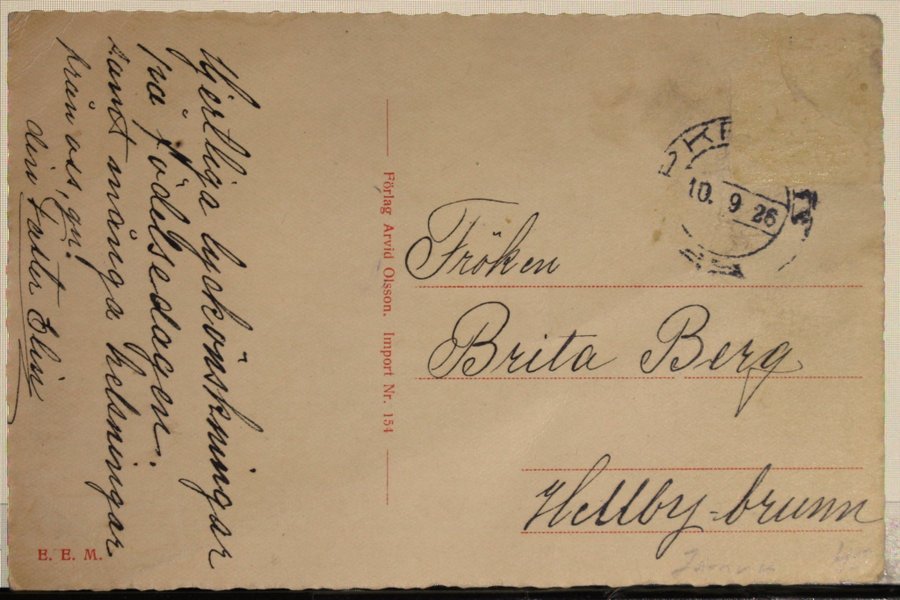 Hjertliga lyckönskningar
på födelsedagen.
samt många helsningar
från oss,
din Faster Elin
E. E. M.
Förlag Arvid Olsson. Import Nr. 154
10. 9 26
Fröken
Brita Berg
Hellby-brunn